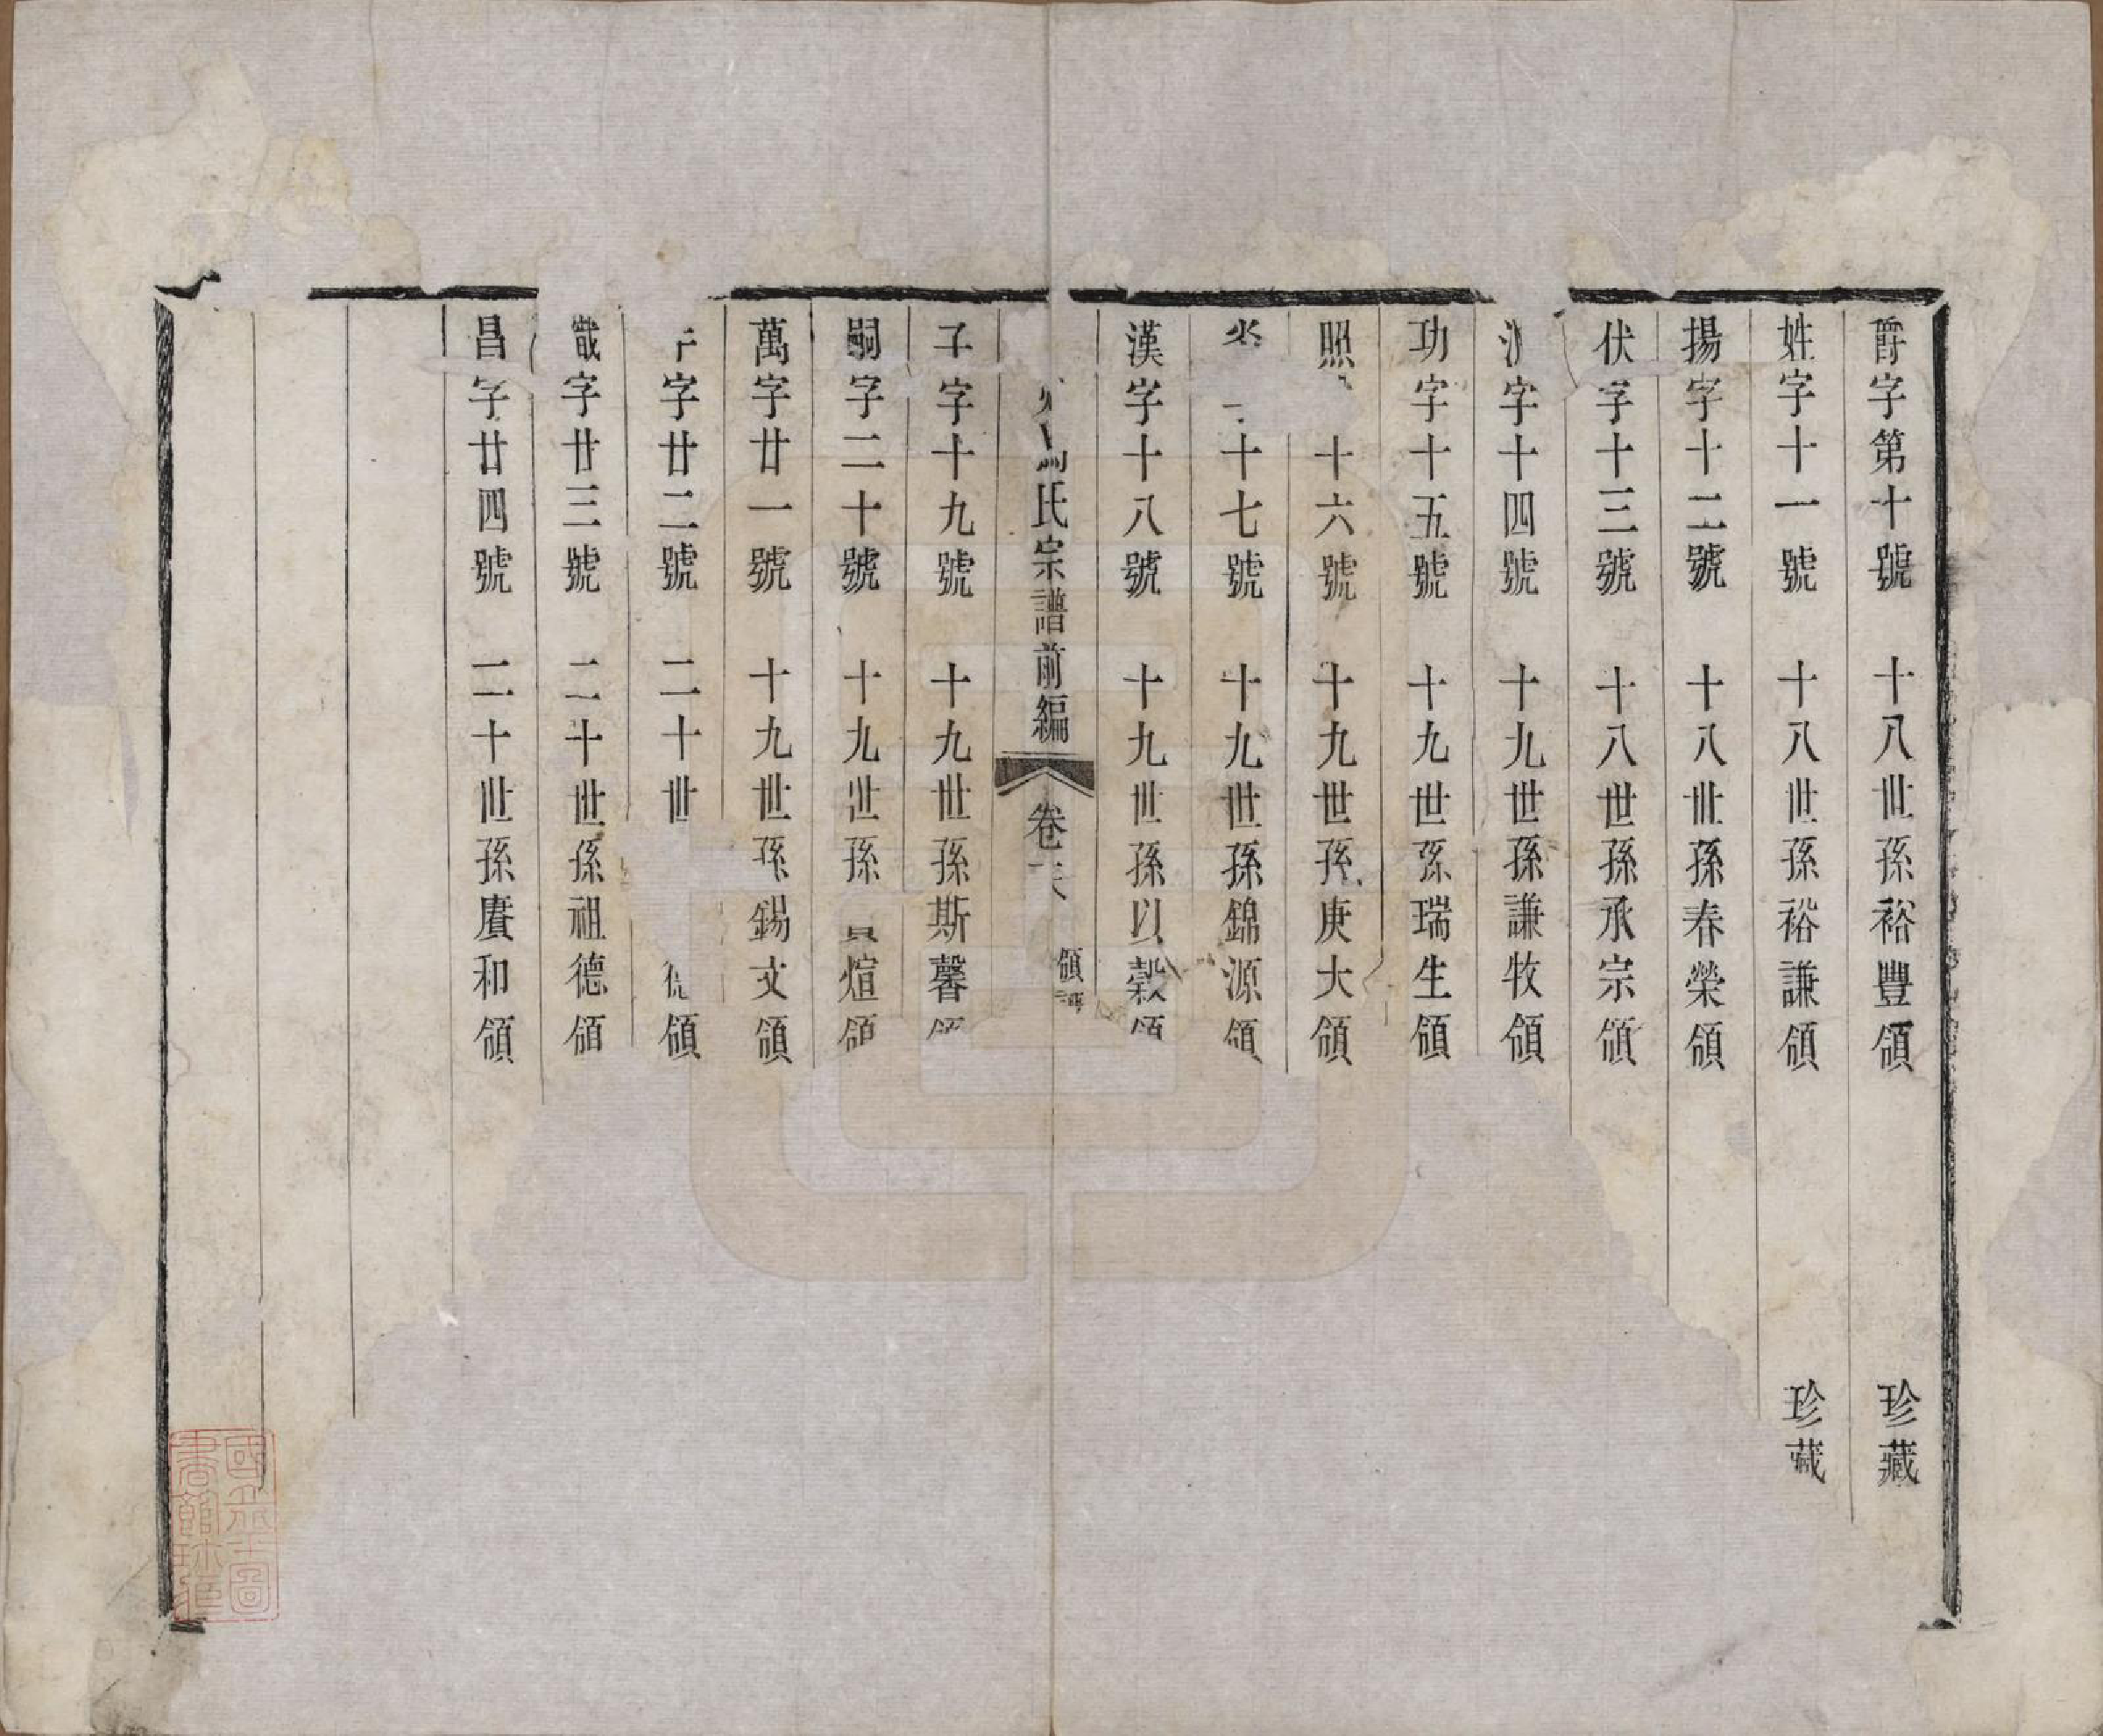 爵字第十號 十八世孫裕豐領 珍藏
姓字十一號 十八世孫裕謙領 珍藏
揚字十二號 十八世孫春榮領
伏字十三號 十八世孫承宗領
字十四號 十九世孫謙牧領
功字十五號 十九世孫瑞生領
照 十六號 十九世孫庚大領
十七號 十九世孫錦源領
漢字十八號 十九世孫以穀領
氏宗譜前編 卷 領譜
子字十九號 十九世孫斯馨領
嗣字二十號 十九世孫 煊領
萬字廿一號 十九世孫錫文領
字廿二號 二十世 領
歲字廿三號 二十世孫祖德領
昌字廿四號 二十世孫賡和領